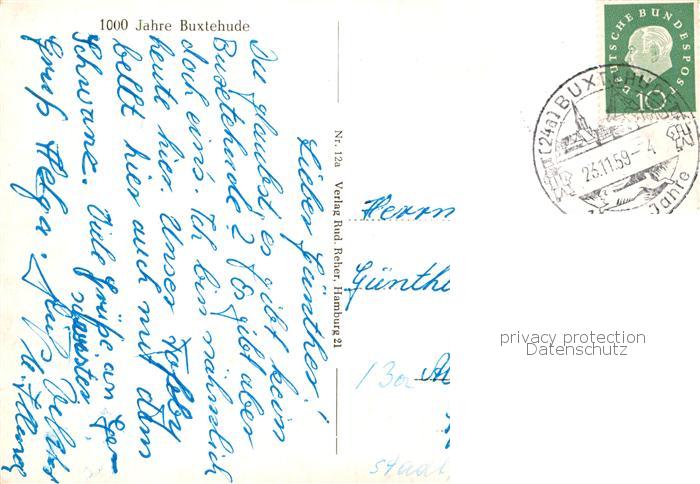 1000 Jahre Buxtehude
Lieber Günther!
Du glaubst, es gibt kein
Buxtehude? Es gibt aber
doch eins. Ich bin nähmlich
heute hier. Unser Tobby
bellt hier auch mit dem
Schwanz. Viele Grüße an
Gruß Helga.
Nr. 12a Verlag Rud. Reher, Hamburg 21
Herrn
Günthe
13a
Staat
DEUTSCHE BUNDESPOST
10
(24a) BUXTEHUDE
23.11.59-4
Jahre
privacy protection
Datenschutz